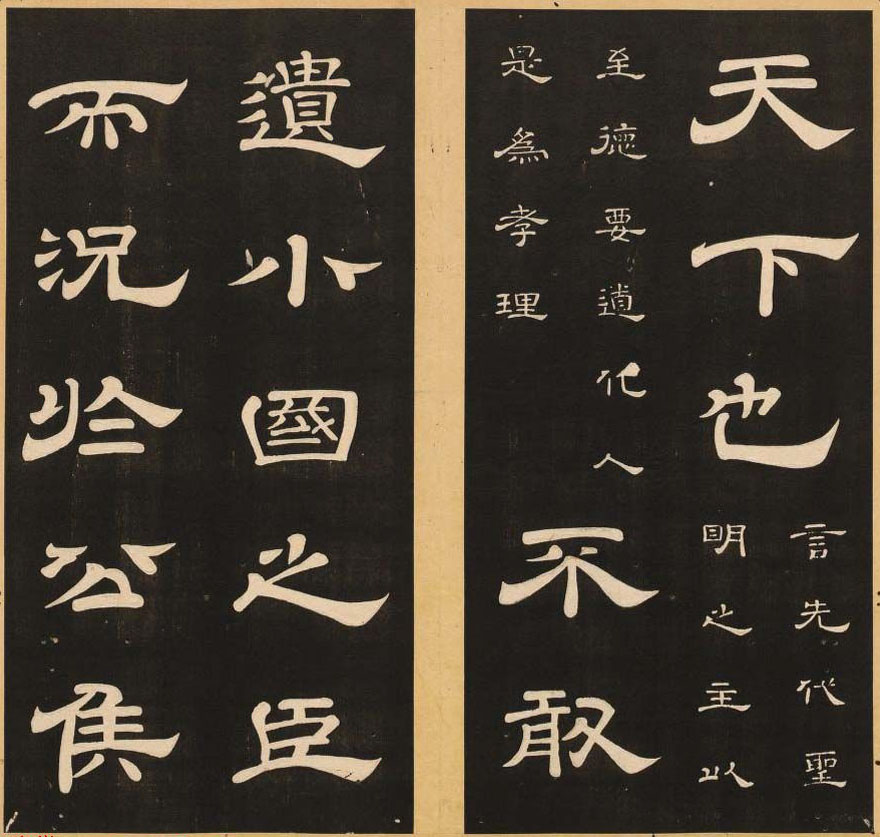 天下也
言先代聖
明之主以
至德要道化人
是為孝理
不敢
遺小國之臣
而況於公侯